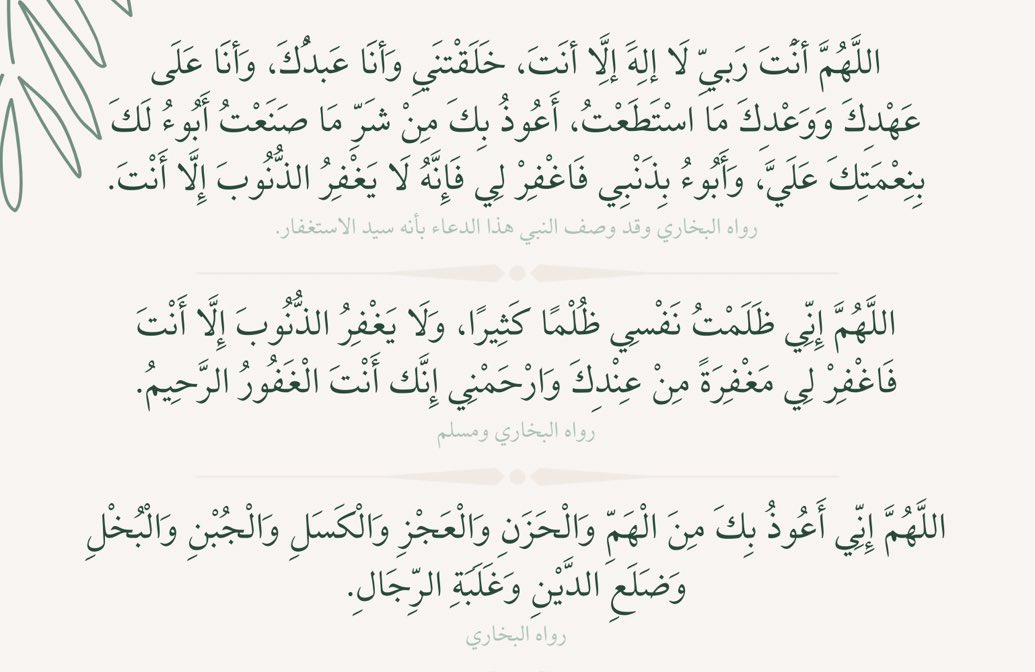 اللَّهُمَّ أَنْتَ رَبِيِّ لَا إِلهَ إِلَّا أنتَ، خَلَقْتنَي وَأنَا عَبدُكَ، وَأنَا عَلَى
عَهْدِكَ وَوَعْدِكَ مَا اسْتَطَعْتُ، أَعُوذُ بِكَ مِنْ شَرِّ مَا صنَعْتُ أَبُوءُ لَكَ
بِنِعْمَتِكَ عَلَيَّ، وَأَبُوءُ بِذَنْبِي فَاغْفِرْ لِي فَإِنَّهُ لَا يَغْفِرُ الذُّنُوبَ إِلَّا أَنْتَ.
رواه البخاري وقد وصف النبي هذا الدعاء بأنه سيد الاستغفار.
اللَّهُمَّ إِنِّي ظَلَمْتُ نَفْسِي ظُلْمًا كَثِيرًا، وَلَا يَغْفِرُ الذُّنُوبَ إِلَّا أَنْتَ
فَاغْفِرْ لِي مَغْفِرَةً مِنْ عِنْدِكَ وَارْحَمْنِي إِنَّك أَنْتَ الْغَفُورُ الرَّحِيمُ.
رواه البخاري ومسلم
اللَّهُمَّ إِنِّي أَعُوذُ بِكَ مِنَ الْهَمِّ وَالْحَزَنِ وَالْعَجْزِ وَالْكَسَلِ وَالْجُبْنِ وَالْبُخْلِ
وَضَلَعِ الدَّيْنِ وَغَلَبَةِ الرِّجَالِ.
رواه البخاري